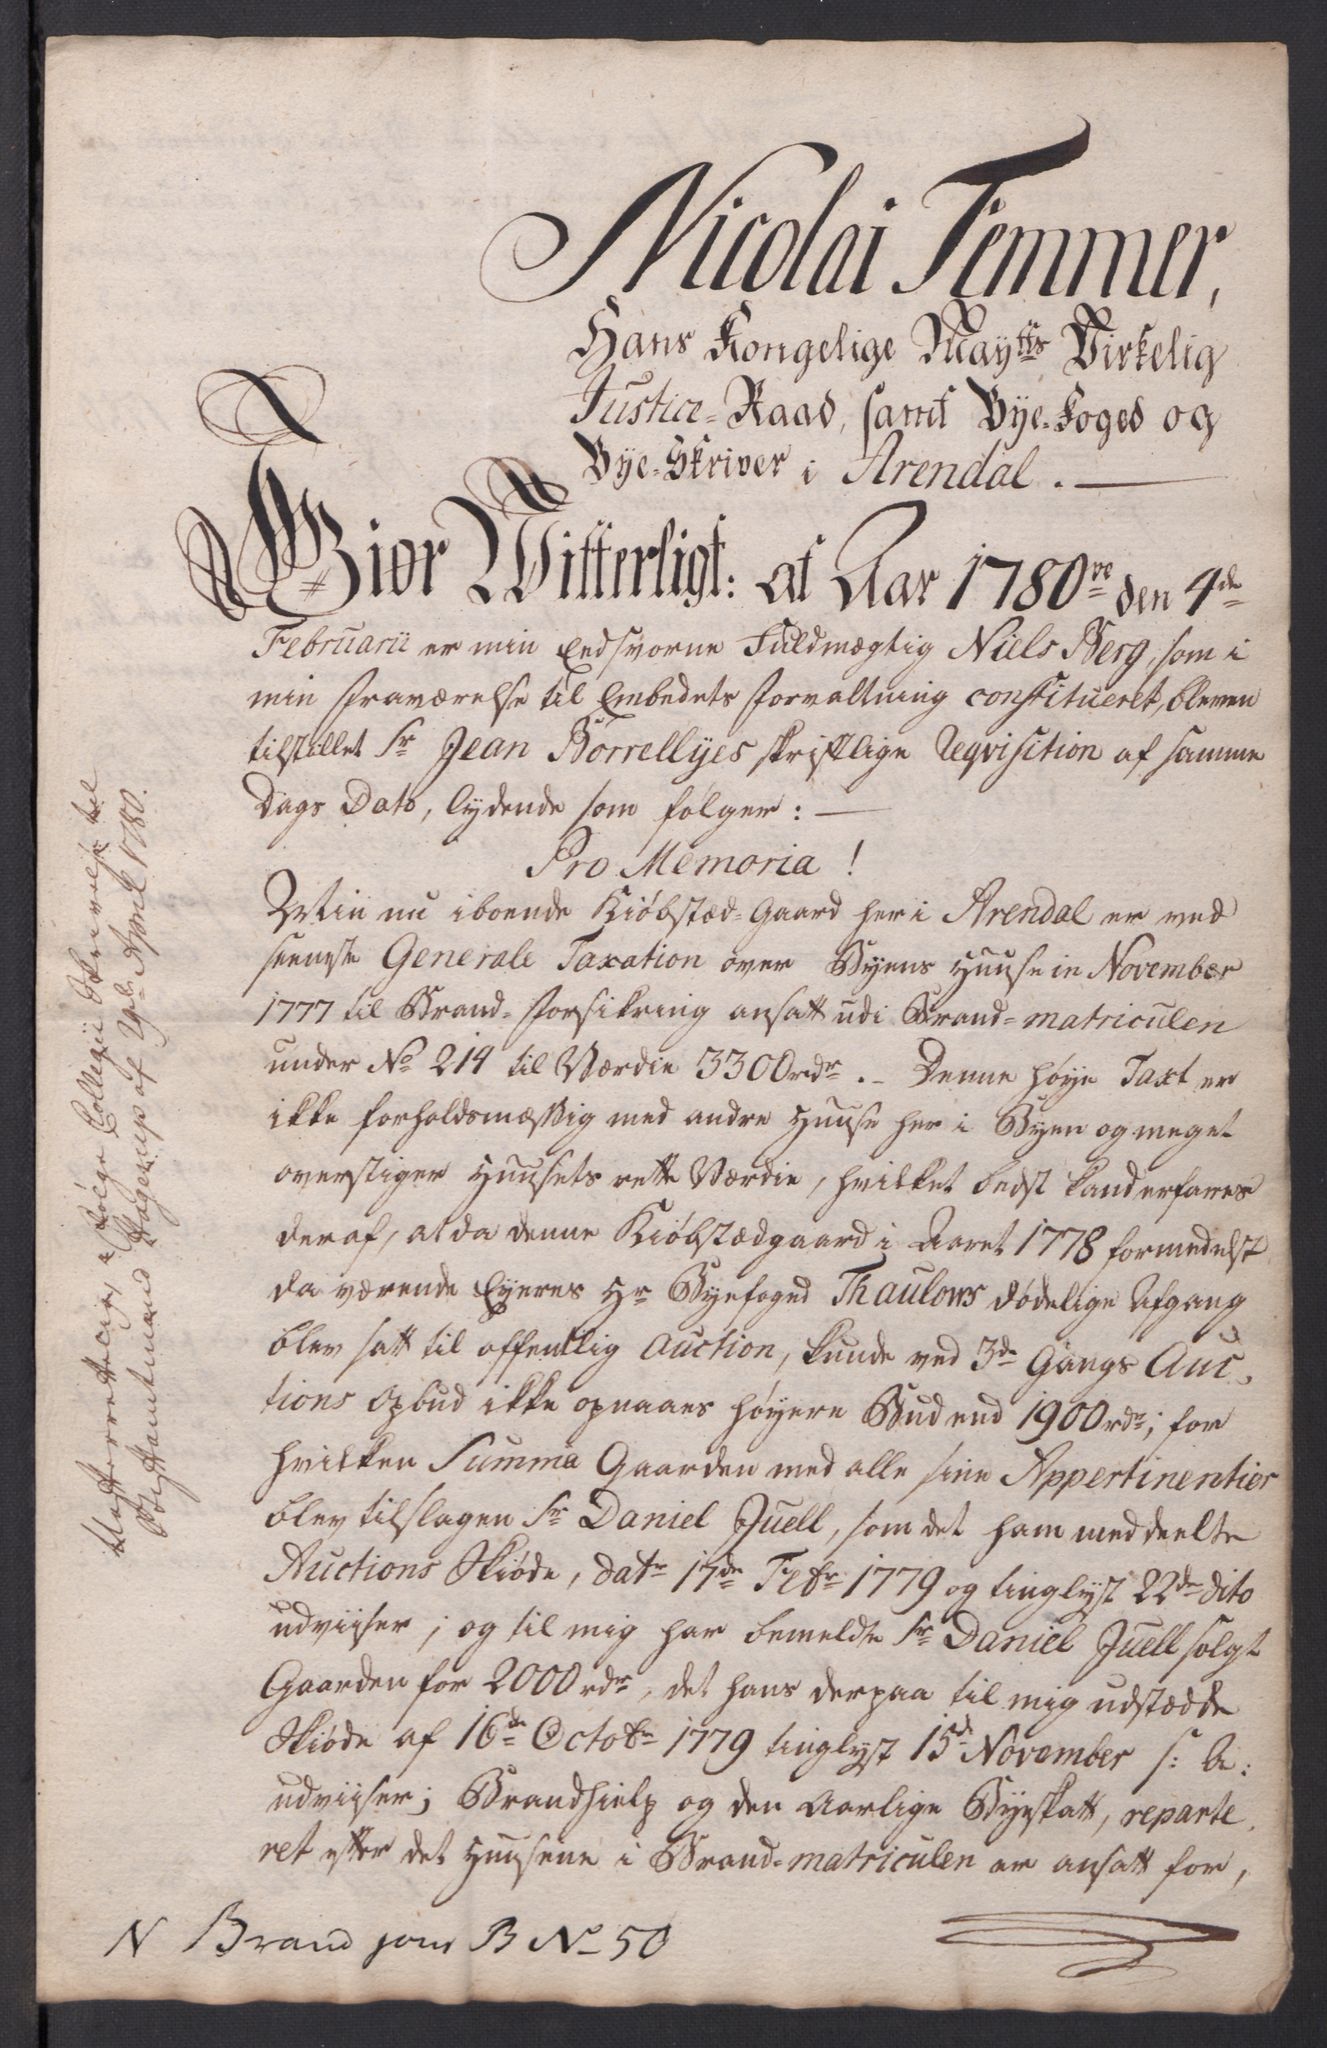 Nicolai Femmer,
Hans Kongelige Mayts Virkelig
Justice-Raad, samt Bye-Foged og
Bye-Skriver i Arendal. —
Giør Witterligt: at Aar 1780ve den 4de
Februarii er min Eedsvorne Fuldmægtig Niels Berg, som i
min Fraværelse til Embedets Forvaltning constitueret, bleven
tilstillet Sr Jean Borrellyes skriftlige Reqvisition af samme
Dags Dato, lydende som følger: —
Pro Memoria!
Min nu iboende Kiøbstæd-Gaard her i Arendal er ved
seeneste Generale Taxation over Byens Huuse in November
1777 til Brand-Forsikring ansatt udi Brand-matriculen
under No 214 til Værdie 3300rdr. – Denne høye Taxt er
ikke forholdsmæssig med andre Huuse her i Byen og meget
overstiger Huusets rette Værdie, hvilket best kand erfares
deraf, at da denne Kiøbstædgaard i Aaret 1778 formedelst
da værende Eyeres Hr Byefoged Thaulows dødelige Afgang
blev satt til offentlig Auction, kunde ved 3de Gangs Auc-
tions Opbud ikke opnaaes høyere Bud end 1900rdr; for
hvilken Summa Gaarden med alle sine Appertinentier
blev tilslagen Sr Daniel Juell, som det ham meddeelte
Auctions Skiøde, datr 17de Febr 1779 og tinglyst 22de dito
udviiser; og til mig har bemeldte Sr Daniel Juell solgt
Gaarden for 2000rdr, det hans derpaa til mig udstædde
Skiøde af 16de Octobr 1779 tinglyst 15de November s: A:
udviiser; Brandhielp og den Aarlige Byeskatt, reparte-
ret efter det Huusene i Brand-matriculen er ansatt for,
N Brand jour B No 50
i følge Collegii Skrivelse til
Stiftamtmand Hagerup af April 1780.